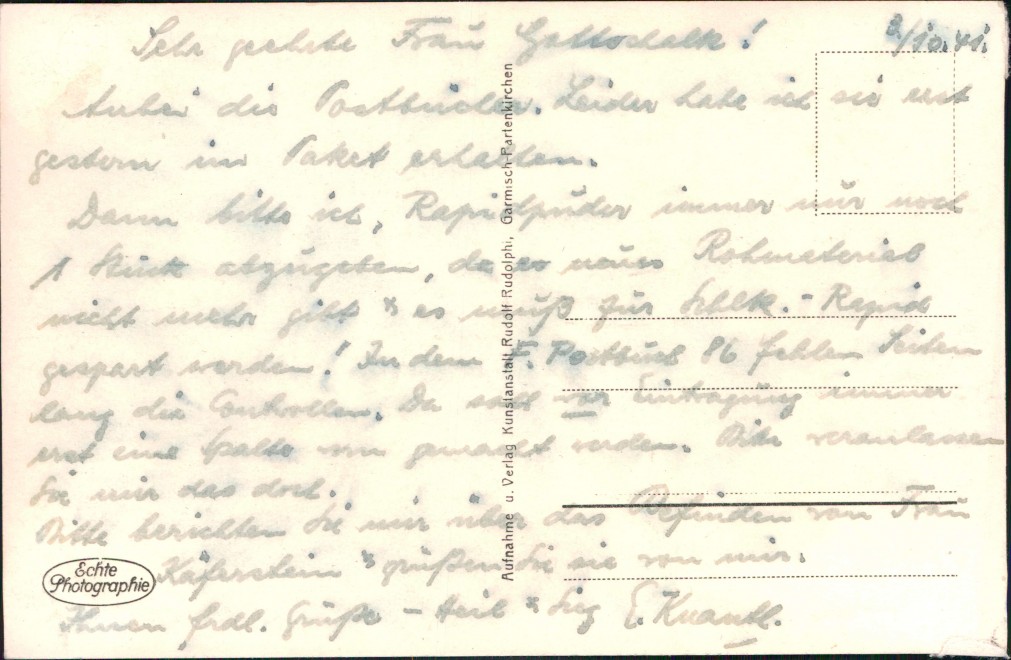 3/10.41.
Sehr geehrte Frau Gottschalk!
Anbei die Postbücher. Leider habe ich sie erst
gestern im Paket erhalten.
Dann bitte ich, Rapidpuder immer nur noch
1 Stück abzugeben, da es neues Rohmaterial
nicht mehr gibt u es muß für Schlk.-Rapid
gespart werden! In dem F. Postbuch 86 fehlen Seiten
lang die Controllen. Da soll vor Eintragung immer
erst eine Spalte von gemacht werden. Bitte veranlassen
Sie mir das doch.
Bitte berichten Sie mir über das Befinden von Frau
Käferstein u grüßen Sie sie von mir.
Ihnen frdl. Grüße - Heil u Sieg E.
Echte
Photographie
Aufnahme u. Verlag Kunstanstalt Rudolf Rudolphi, Garmisch-Partenkirchen